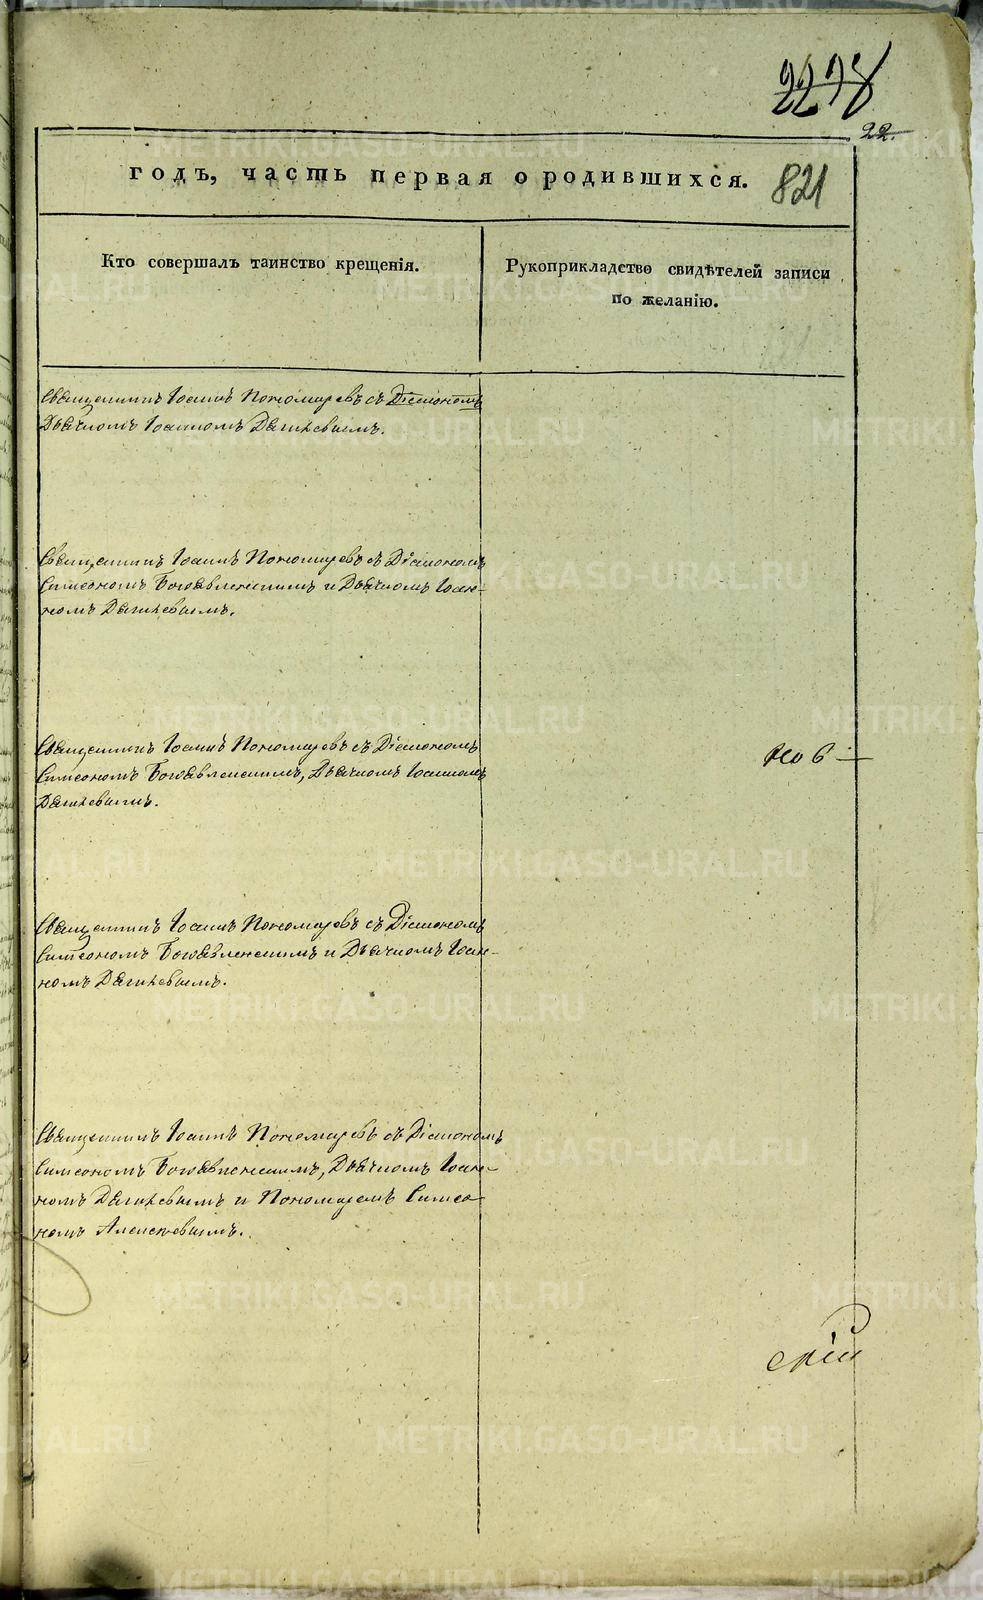 2278
22.
годъ, часть первая о родившихся. 821
Кто совершалъ таинство крещенія.
Рукоприкладство свидѣтелей записи
по желанію.
Священникъ Іоаннъ Пономаревъ съ Діакономъ
Дьячкомъ Іоанномъ Дягилевымъ.
Священникъ Іоаннъ Пономаревъ съ Діакономъ
Симеономъ Богоявленскимъ и Дьячкомъ Іоан-
номъ Дягилевымъ.
Священникъ Іоаннъ Пономаревъ съ Діакономъ
Симеономъ Богоявленскимъ, Дьячкомъ Іоанномъ
Дягилевымъ.
нов
Священникъ Іоаннъ Пономаревъ съ Діакономъ
Симеономъ Богоявленскимъ и Дьячкомъ Іоан-
номъ Дягилевымъ.
Священникъ Іоаннъ Пономаревъ съ Діакономъ
Симеономъ Богоявленскимъ, Дьячкомъ Іоан-
номъ Дягилевымъ и Пономаремъ Симео-
номъ Алексѣевымъ.
скій
METRIKI.GASO-URAL.RU